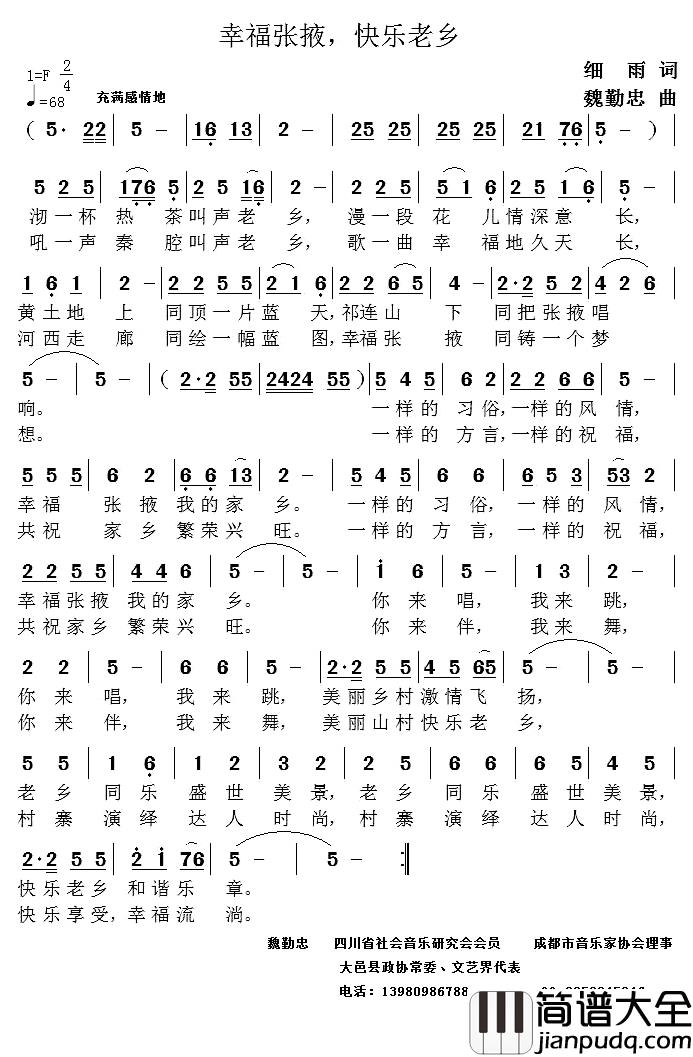 幸福张掖，快乐老乡
1=F 2/4
♩=68 充满感情地
细雨 词
魏勤忠 曲
( 5· 22 | 5 - | 16 13 | 2 - | 25 25 | 25 25 | 21 76 | 5 - )
5 2 5 | 176 5 | 2 5 16 | 2 - | 5 1 6 | 5 1 6 | 5 - |
沏一杯热茶叫声老乡，漫一段花儿情深意长，
吼一声秦腔叫声老乡，歌一曲幸福地久天长，
1 6 1 | 2 - | 2 2 5 5 | 2 2 5 | 2 2 6 5 | 4 - | 2·2 5 2 | 4 2 6 |
黄土地上同顶一片蓝天，祁连山下同把张掖唱
河西走廊同绘一幅蓝图，幸福张掖同铸一个梦
5 - | 5 - | ( 2·2 55 | 2424 55 ) | 5 4 5 | 6 2 | 2 2 6 6 | 5 - |
响。一样的习俗，一样的风情，
想。一样的方言，一样的祝福，
5 5 5 | 6 2 | 6 6 13 | 2 - | 5 4 5 | 6 - | 6 5 3 | 53 2 |
幸福张掖我的家乡。一样的习俗，一样的风情，
共祝家乡繁荣兴旺。一样的方言，一样的祝福，
2 2 5 5 | 4 4 6 | 5 - | 5 - | i 6 | 5 - | 1 3 | 2 - |
幸福张掖我的家乡。你来唱，我来跳，
共祝家乡繁荣兴旺。你来伴，我来舞，
2 2 | 5 - | 6 6 | 5 - | 2·2 5 2 | 4 5 65 | 5 - | 5 - |
你来唱，我来跳，美丽乡村激情飞扬，
你来伴，我来舞，美丽山村快乐老乡，
5 5 | 1 6 | 1 2 | 3 2 | 2 5 | 6 6 | 6 5 | 5 - |
老乡同乐盛世美景，老乡同乐盛世美景，
村寨演绎达人时尚，村寨演绎达人时尚，
2·2 5 5 | 2 i 76 | 5 - | 5 - :‖
快乐老乡和谐乐章。
快乐享受，幸福流淌。
魏勤忠 四川省社会音乐研究会会员 成都市音乐家协会理事
大邑县政协常委、文艺界代表
电话：13980986788
简谱大全
jianpudq.com